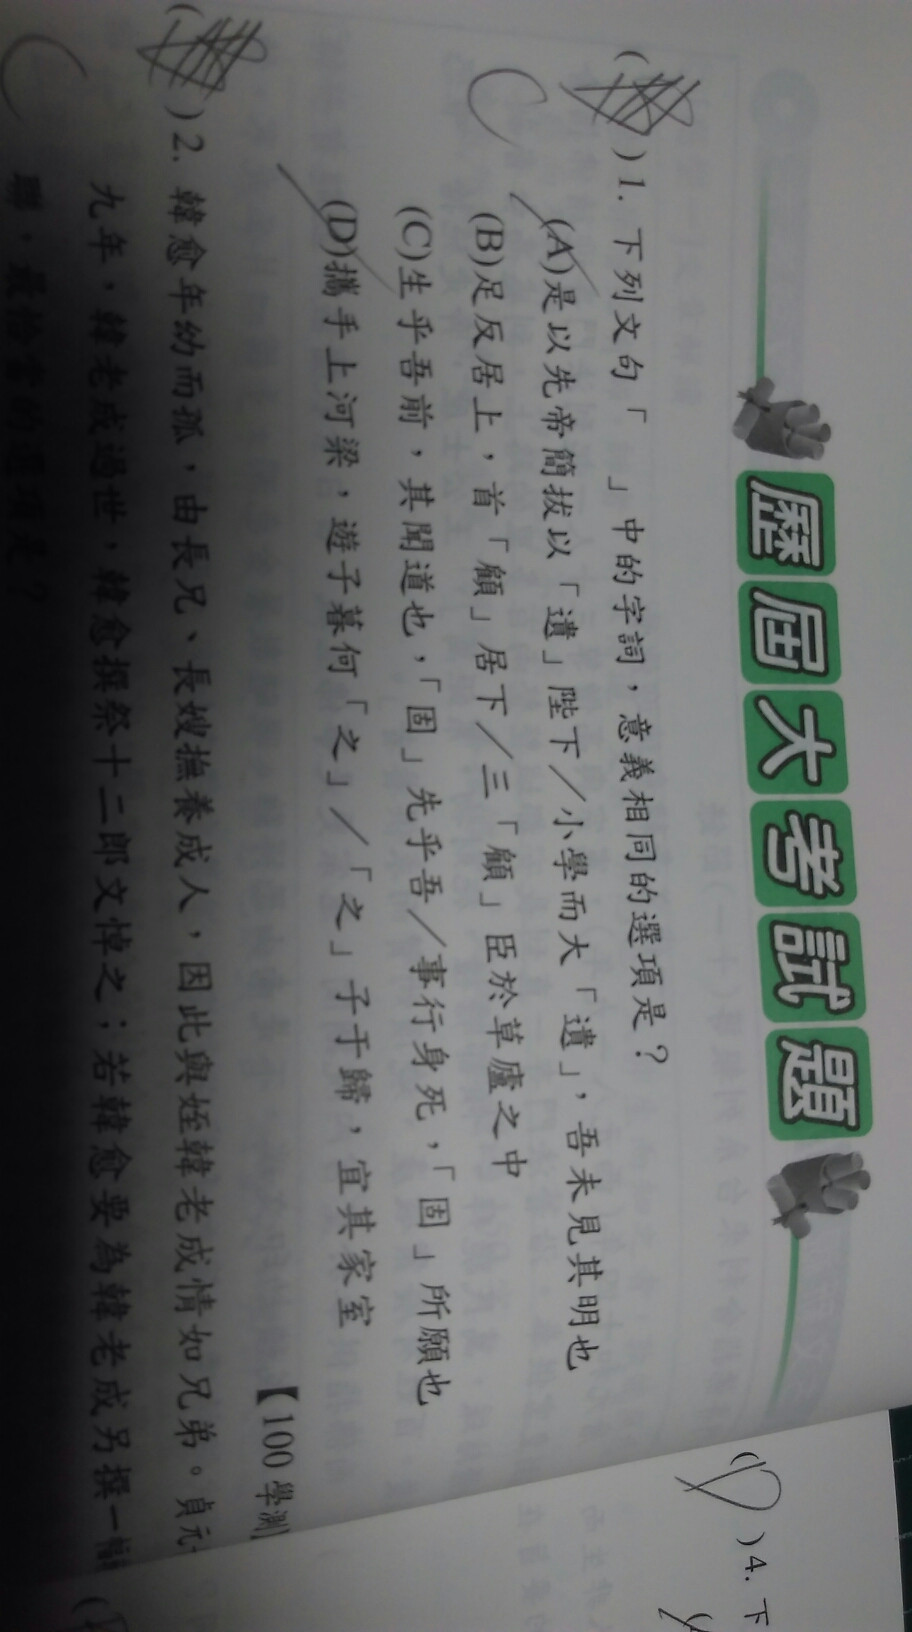 歷屆大考試題
( )1. 下列文句「 」中的字詞，意義相同的選項是？
(A)是以先帝簡拔以「遺」陛下／小學而大「遺」，吾未見其明也
(B)足反居上，首「顧」居下／三「顧」臣於草廬之中
(C)生乎吾前，其聞道也，「固」先乎吾／事行身死，「固」所願也
(D)攜手上河梁，遊子暮何「之」／「之」子于歸，宜其家室
【100 學測
( )2. 韓愈年幼而孤，由長兄、長嫂撫養成人，因此與姪韓老成情如兄弟。貞元
九年，韓老成過世，韓愈撰祭十二郎文悼之；若韓愈要為韓老成另撰一輓
聯，最恰當的選項是？
C
C
( )4. 下